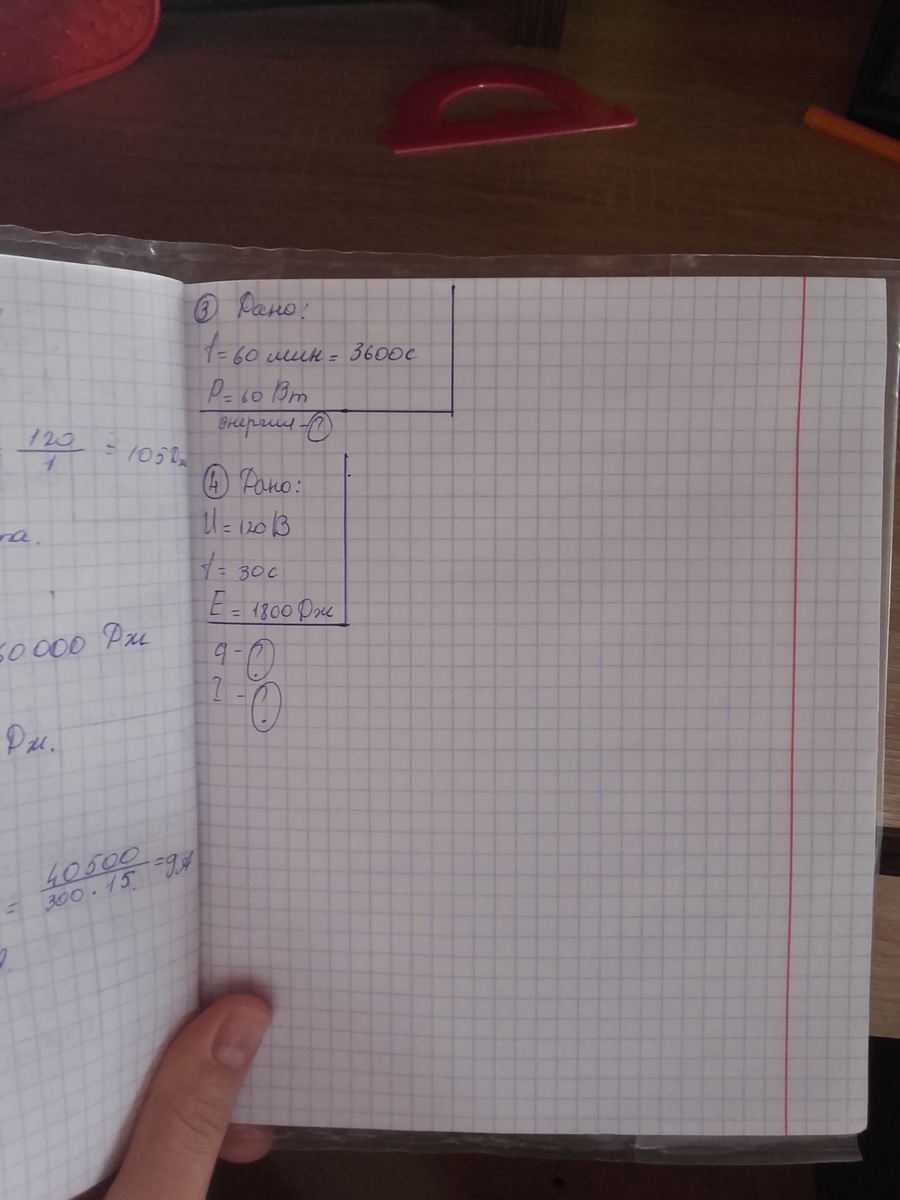 120
1
= 105 Дж
та.
60 000 Дж
Дж.
= 40500
300 · 15
= 9А
③ Дано:
t = 60 мин = 3600 с
P = 60 Вт
энергия - ?
④ Дано:
U = 120 В
t = 30 с
E = 1800 Дж
q - ?
I - ?